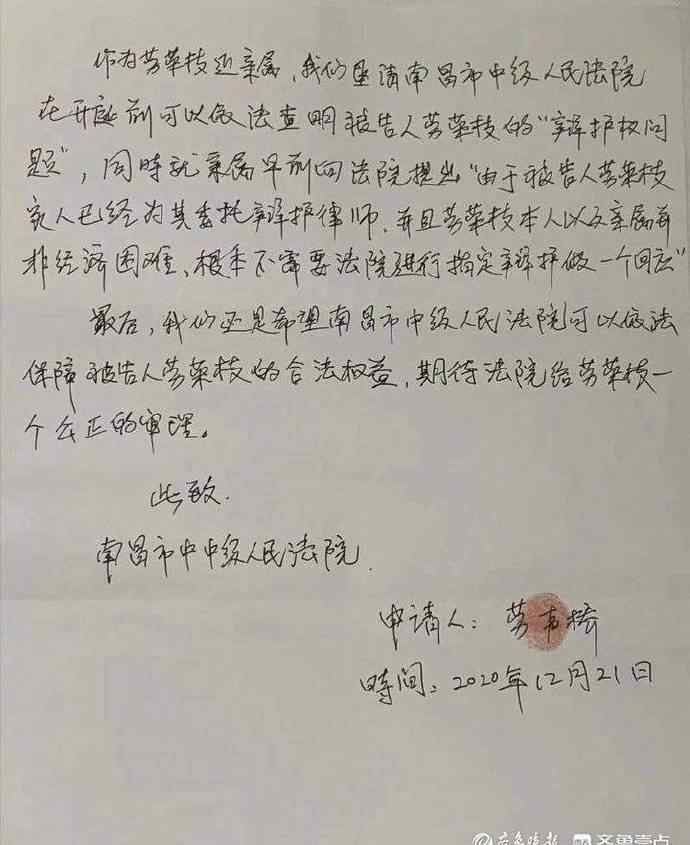 作为劳荣枝近亲属，我们恳请南昌市中级人民法院
在开庭前可以依法查明被告人劳荣枝的“辩护权问
题”，同时就亲属早前向法院提出“由于被告人劳荣枝
家人已经为其委托辩护律师，并且劳荣枝本人以及亲属并
非经济困难、根本不需要法院进行指定辩护做一个回应”
最后，我们还是希望南昌市中级人民法院可以依法
保障被告人劳荣枝的合法权益，期待法院给劳荣枝一
个公正的审理。
此致.
南昌市中中级人民法院.
申请人：劳声桥
时间：2020年12月21日
齐鲁晚报 齐鲁壹点